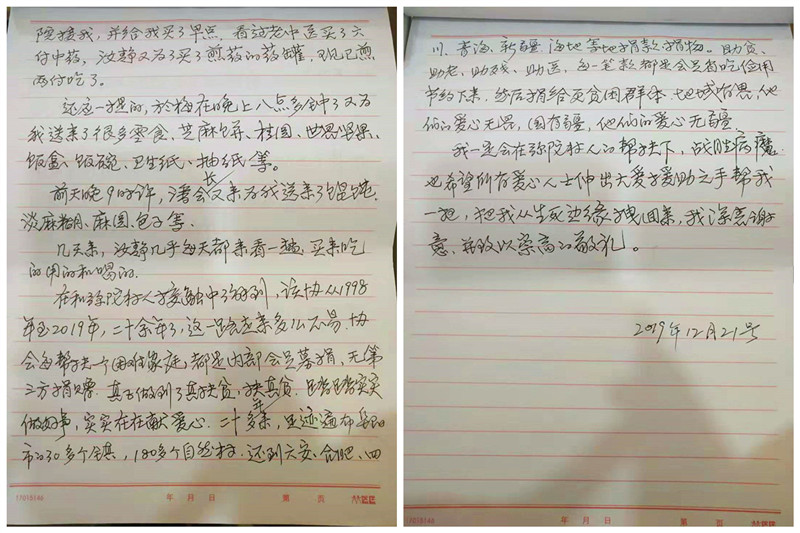 院接我,并给我买了早点,看过老中医买了六
付中药,汝静又为了买了煎药的药罐,现已煎
两付吃了。
还应一提的,於梅在晚上八点多钟了又为
我送来了很多零食、芝麻饼、桂圆、世界坚果、
饭盒、饭碗、卫生纸、抽纸等。
前天晚9时许,潘会长又亲为我送来了馄饨、
淡麻糊、麻圆、包子等.
几天来,汝静几乎每天都来看一趟,买来吃
的用的和喝的.
在和弥陀村人接触中了解到,该协从1998
年至2019年,二十余年了,这一路走来多么不易.协
会每帮扶一个困难家庭,都是内部会员募捐,无第
三方捐赠.真正做到了真扶贫,扶真贫.踏踏实实
做好事,实实在在献爱心.二十多年来,足迹遍布
市的30多个镇,180多个自然村.还到六安、合肥、四
17015146 年 月 日 第 页
川、青海、新疆、海地等地捐款捐物。助贫、
助老、助残、助医,每一笔款都是会员省吃俭用
节约下来,然后捐给更贫困群体.地域有界,他
们的爱心无界,国有疆,他们的爱心无疆
我一定会在弥陀村人的帮扶下,战胜病魔
也希望所有爱心人士伸出大爱援助之手帮我
一把,把我从生死边缘拽回来,我深表谢
意,并致以崇高的敬礼。
2019年12月21号
17015146 年 月 日 第 页